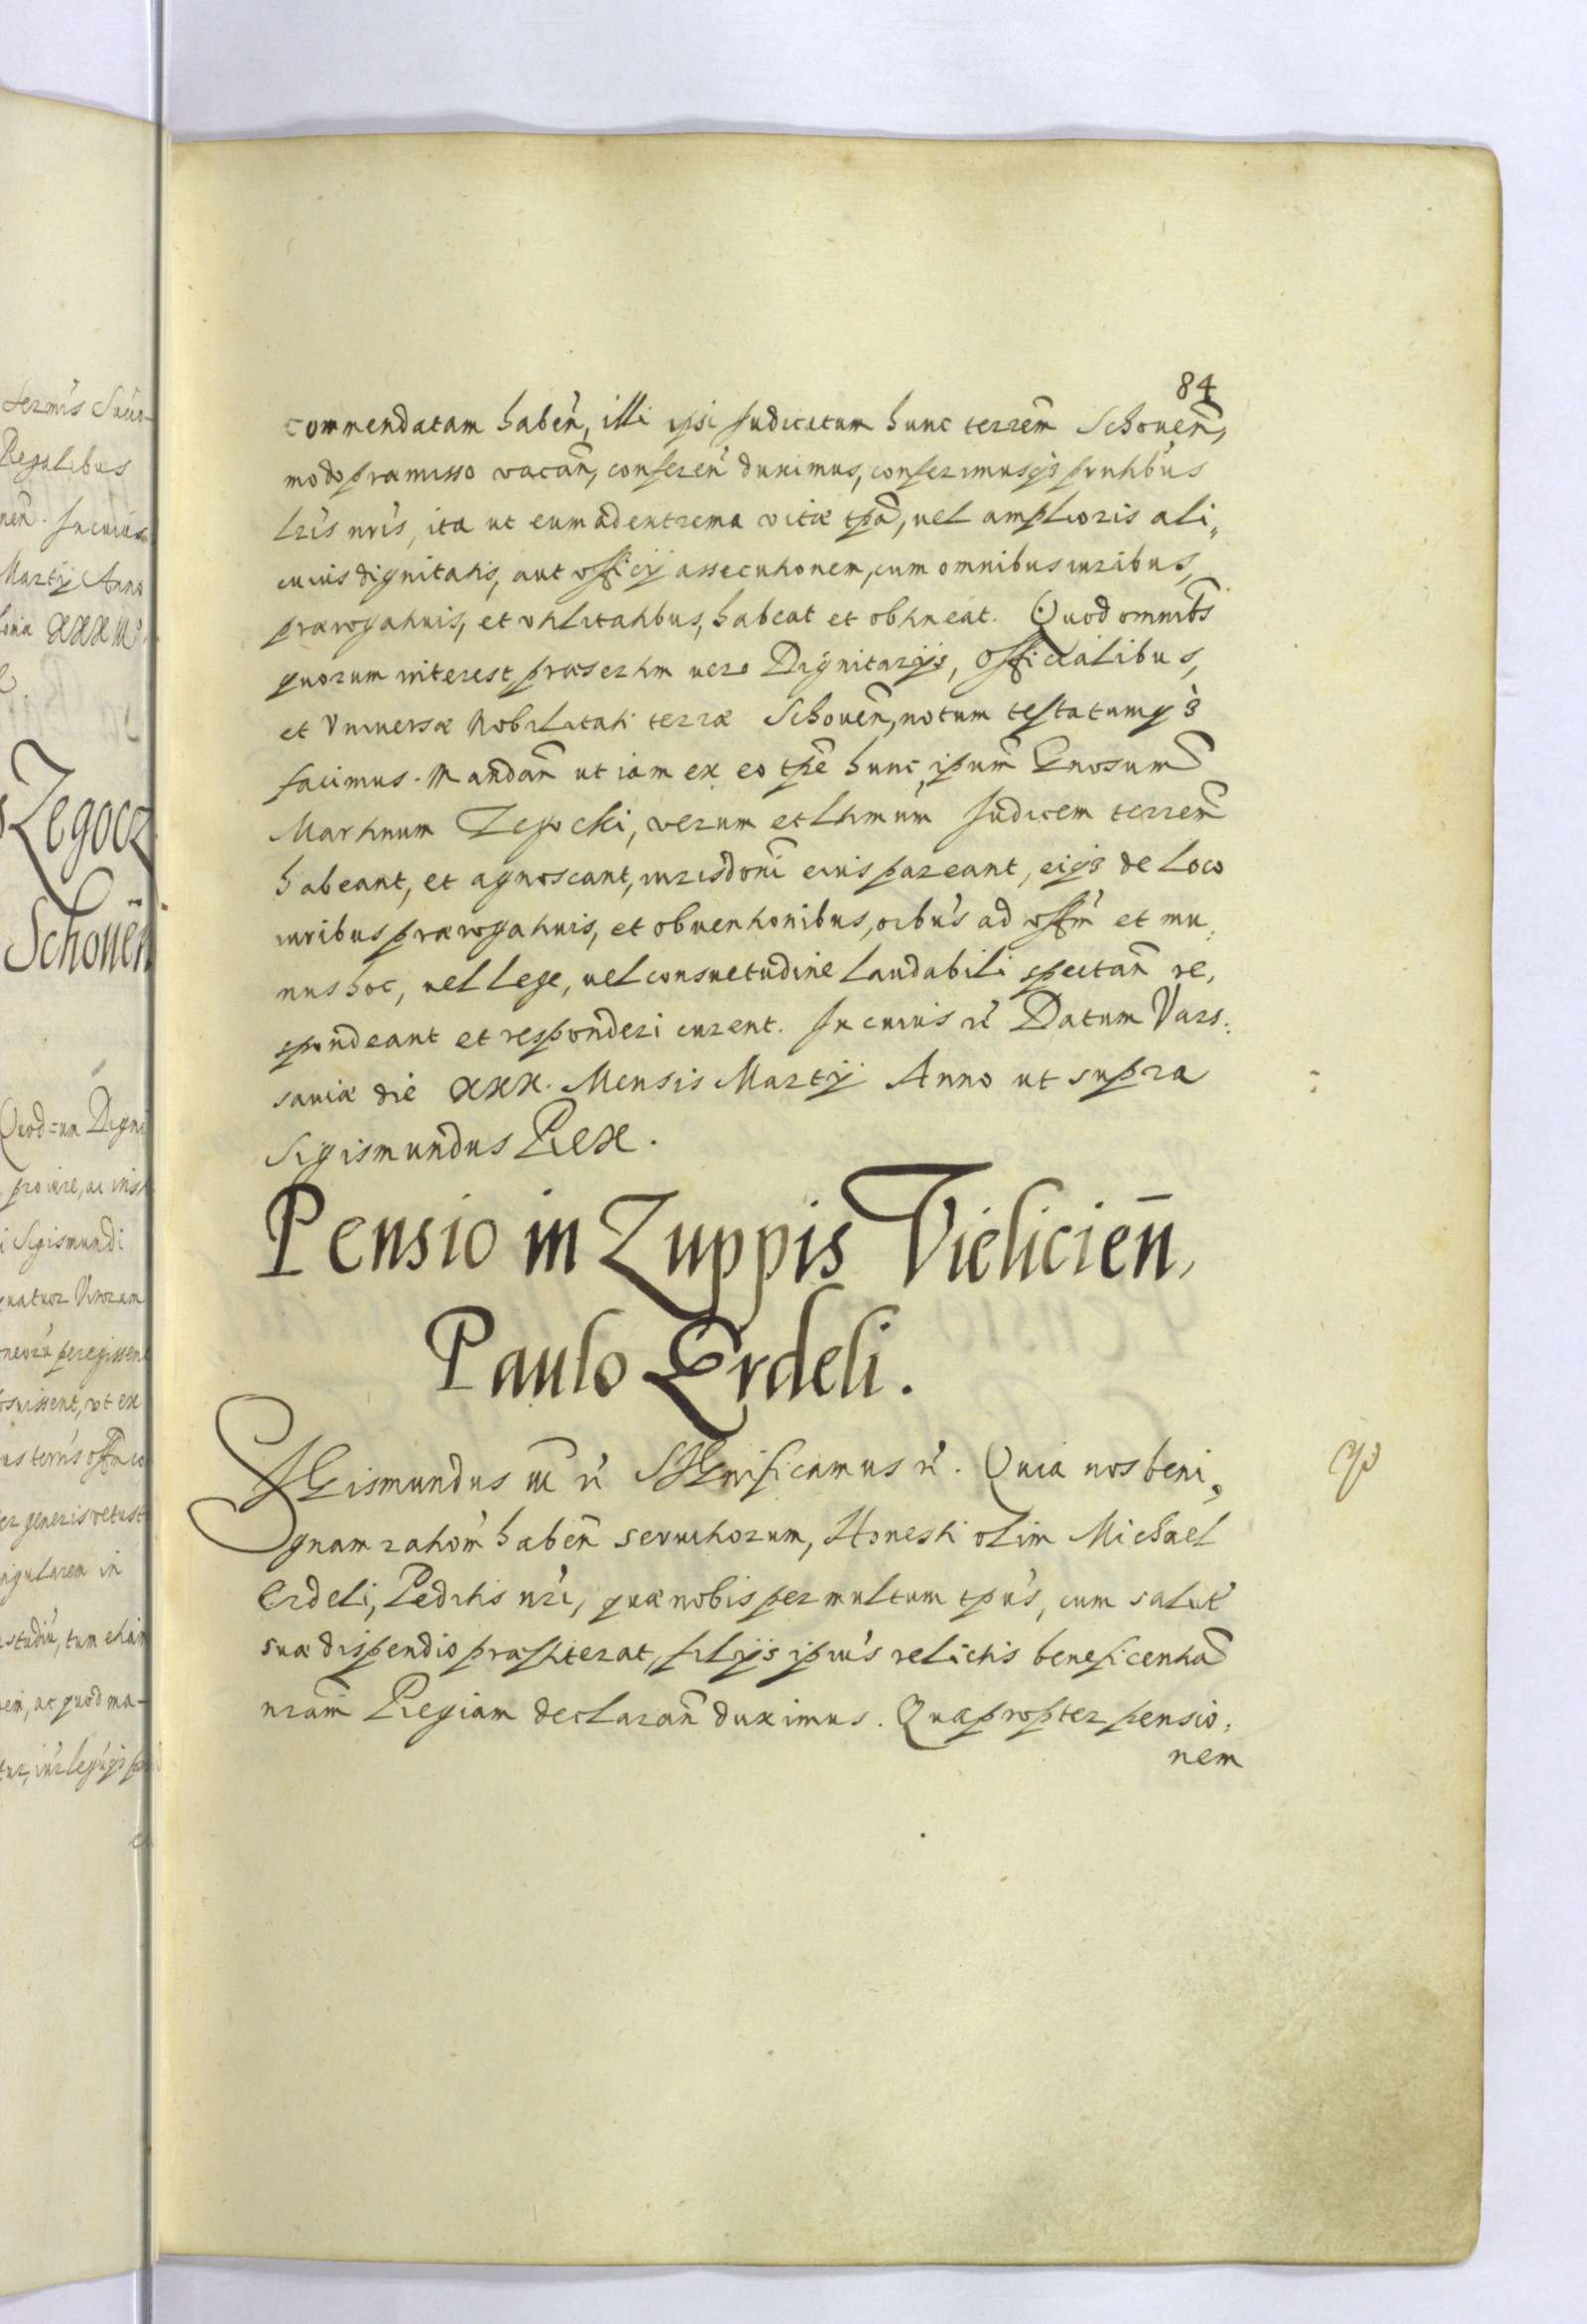 84
commendatam haben̄, illi ipsi Judicatum hunc terrem̄ Schouen̄,
modo præmisso vacan̄, conferen̄ duximus, conferimusq3 pn̄tib's
lr̄is nr̄is, ita ut eum ad extrema vitæ tp̄a, uel amplioris ali„
cuius dignitatis, aut officij assecutionem, cum omnibus iuribus,
prærogatiuis, et vtilitatibus, habeat et obtineat. Quod omnib's
quorum interest, præsertim uero Dignitarijs, Officialibus,
et Vniuersæ Nobilitati terræ Schouen̄, notum testatumq3
facimus. Mandan̄ ut iam ex eo tp̄e hunc ip̄um Gn̄osum
Martinum Zegocki, verum et l̄timūm Judicem terrem̄
habeant, et agnoscant, iurisdōni eius pareant, eiq3 de loco
iuribus prærogatiuis, et obuentionibus, oīb's ad off̄m et mu„
nus hoc, uel lege, uel consuetudine laudabili spectan̄ re„
spondeant et responderi curent. In cuius r̄ Datum Vars„
sauiæ die XXX. Mensis Martij Anno ut supra
Sigismundus Rex.
Pensio in Zuppis Vielicien̄,
Paulo Erdeli.
SIGismundus III r̄ SIGnificamus r̄. Quia nos beni„
gnam rationr̄ haben̄ seruitiorum, Honesti olim Michael
Erdeli, Peditis nr̄i, quæ nobis per multum tp̄us, cum salut̄
suæ dispendio præstiterat, filijs ip̄ius relictis beneficentiā
nr̄am Regiam declaran̄ duximus. Quapropter pensio„
nem
Zegocz
Schouen̄
Regalibus
Martij Anno
i Sigismundi